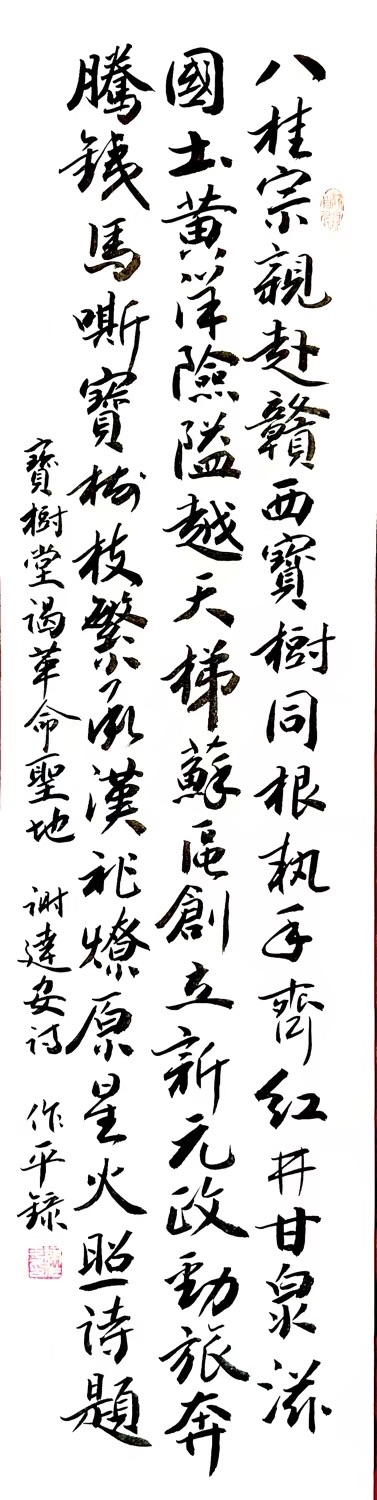 八桂宗親赴贛西寶樹同根執手齊紅井甘泉滋
國土黃洋險隘越天梯蘇區創立新元政勁旅奔
騰鐵馬嘶寶樹枝繁承漢祚燎原星火照詩題
寶樹堂謁革命聖地 謝達安詩 作平錄